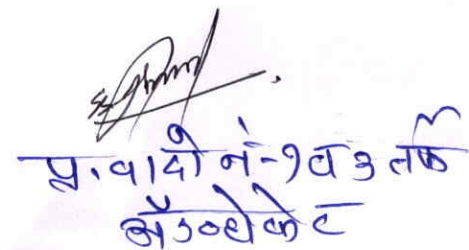 प्र.वादी नं-१ व ३ तर्फे
अॅडव्होकेट